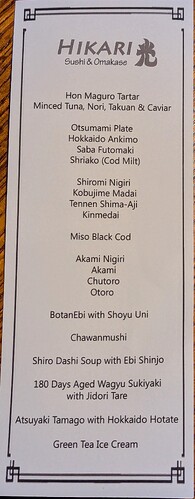 HIKARI 光
Sushi & Omakase
Hon Maguro Tartar
Minced Tuna, Nori, Takuan & Caviar
Otsumami Plate
Hokkaido Ankimo
Saba Futomaki
Shriako (Cod Milt)
Shiromi Nigiri
Kobujime Madai
Tennen Shima-Aji
Kinmedai
Miso Black Cod
Akami Nigiri
Akami
Chutoro
Otoro
BotanEbi with Shoyu Uni
Chawanmushi
Shiro Dashi Soup with Ebi Shinjo
180 Days Aged Wagyu Sukiyaki
with Jidori Tare
Atsuyaki Tamago with Hokkaido Hotate
Green Tea Ice Cream